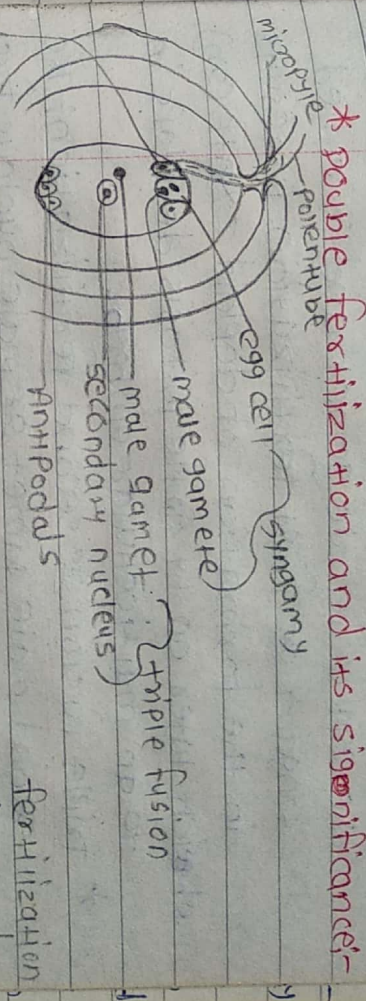 * Double fertilization and its significance:-
micropyle
pollentube
egg cell
syngamy
male gamete
male gamet
triple fusion
secondary nucleus
Antipodals
fertilization